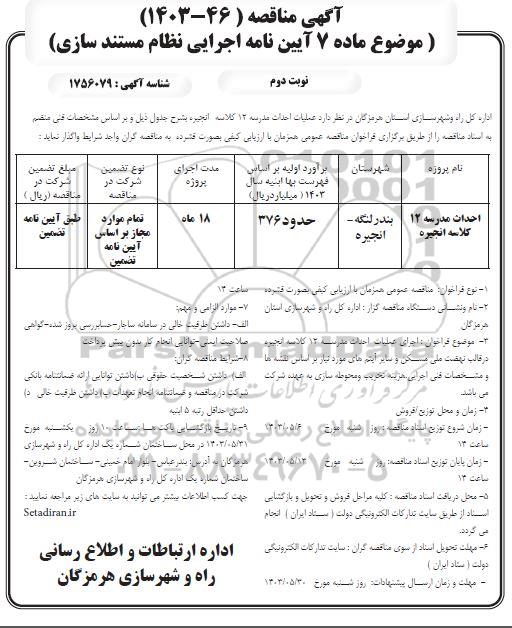 آگهی مناقصه ( ۴۶-۱۴۰۳)
( موضوع ماده ۷ آیین نامه اجرایی نظام مستند سازی)
نوبت دوم
شناسه آگهی : ۱۷۵۶۰۷۹
اداره کل راه وشهرسازی استان هرمزگان در نظر دارد عملیات احداث مدرسه ۱۲ کلاسه انجیره بشرح جدول ذیل و بر اساس مشخصات فنی منضم
به اسناد مناقصه را از طریق برگزاری فراخوان مناقصه عمومی همزمان با ارزیابی کیفی بصورت فشرده به مناقصه گران واجد شرایط واگذار نماید :
نام پروژه
شهرستان
برآورد اولیه بر اساس فهرست بها ابنیه سال ۱۴۰۳ ( میلیاردریال)
مدت اجرای پروژه
نوع تضمین شرکت در مناقصه
مبلغ تضمین شرکت در مناقصه (ریال )
احداث مدرسه ۱۲ کلاسه انجیره
بندرلنگه- انجیره
حدود۳۷۶
۱۸ ماه
تمام موارد مجاز بر اساس آیین نامه تضمین
طبق آیین نامه تضمین
۱- نوع فراخوان: مناقصه عمومی همزمان با ارزیابی کیفی بصورت فشرده
۲-نام ونشانی دستگاه مناقصه گزار : اداره کل راه و شهرسازی استان
هرمزگان
۳- موضوع فراخوان : اجرای عملیات احداث مدرسه ۱۲ کلاسه انجیره
درقالب نهضت ملی مسکن و سایر آیتم های مورد نیاز بر اساس نقشه ها
و مشخصات فنی اجرایی.هزینه تخریب ومحوطه سازی به عهده شرکت
می باشد.
۴- زمان و محل توزیع/فروش
- زمان شروع توزیع اسناد مناقصه : روز شنبه مورخ ۱۴۰۳/۰۵/۶
ساعت ۱۴
- زمان پایان توزیع اسناد مناقصه: روز شنبه مورخ ۱۴۰۳/۰۵/۱۳
ساعت ۱۴
۵- محل دریافت اسناد مناقصه : کلیه مراحل فروش و تحویل و بازگشایی
اسناد از طریق سایت تدارکات الکترونیکی دولت ( ستاد ایران ) انجام
می گردد.
۶- مهلت تحویل اسناد از سوی مناقصه گران : سایت تدارکات الکترونیکی
دولت ( ستاد ایران )
- مهلت و زمان ارسال پیشنهادات: روز شنبه مورخ ۱۴۰۳/۰۵/۳۰
ساعت ۱۴
۷- موارد الزامی و مهم:
الف- داشتن ظرفیت خالی در سامانه ساجار-حسابرسی بروز شده-گواهی
صلاحیت ایمنی-توانایی انجام کار بدون پیش پرداخت
۸-شرایط مناقصه گران:
الف) داشتن شخصیت حقوقی ب)داشتن توانایی ارائه ضمانتنامه بانکی
شرکت در مناقصه و ضمانتنامه انجام تعهدات پ) داشتن ظرفیت خالی د)
داشتن حداقل رتبه ۵ ابنیه
۹- تاریخ بازگشایی پاکت ها: ساعت ۱۰ روز یکشنبه مورخ
۱۴۰۳/۰۵/۳۱ در محل ساختمان شماره یک اداره کل راه و شهرسازی
هرمزگان به آدرس: بندرعباس- بلوار امام خمینی- ساختمان شروین-
ساختمان شماره یک اداره کل راه و شهرسازی هرمزگان
جهت کسب اطلاعات بیشتر می توانید به سایت های زیر مراجعه نمایید :
Setadiran.ir
اداره ارتباطات و اطلاع رسانی
راه و شهرسازی هرمزگان